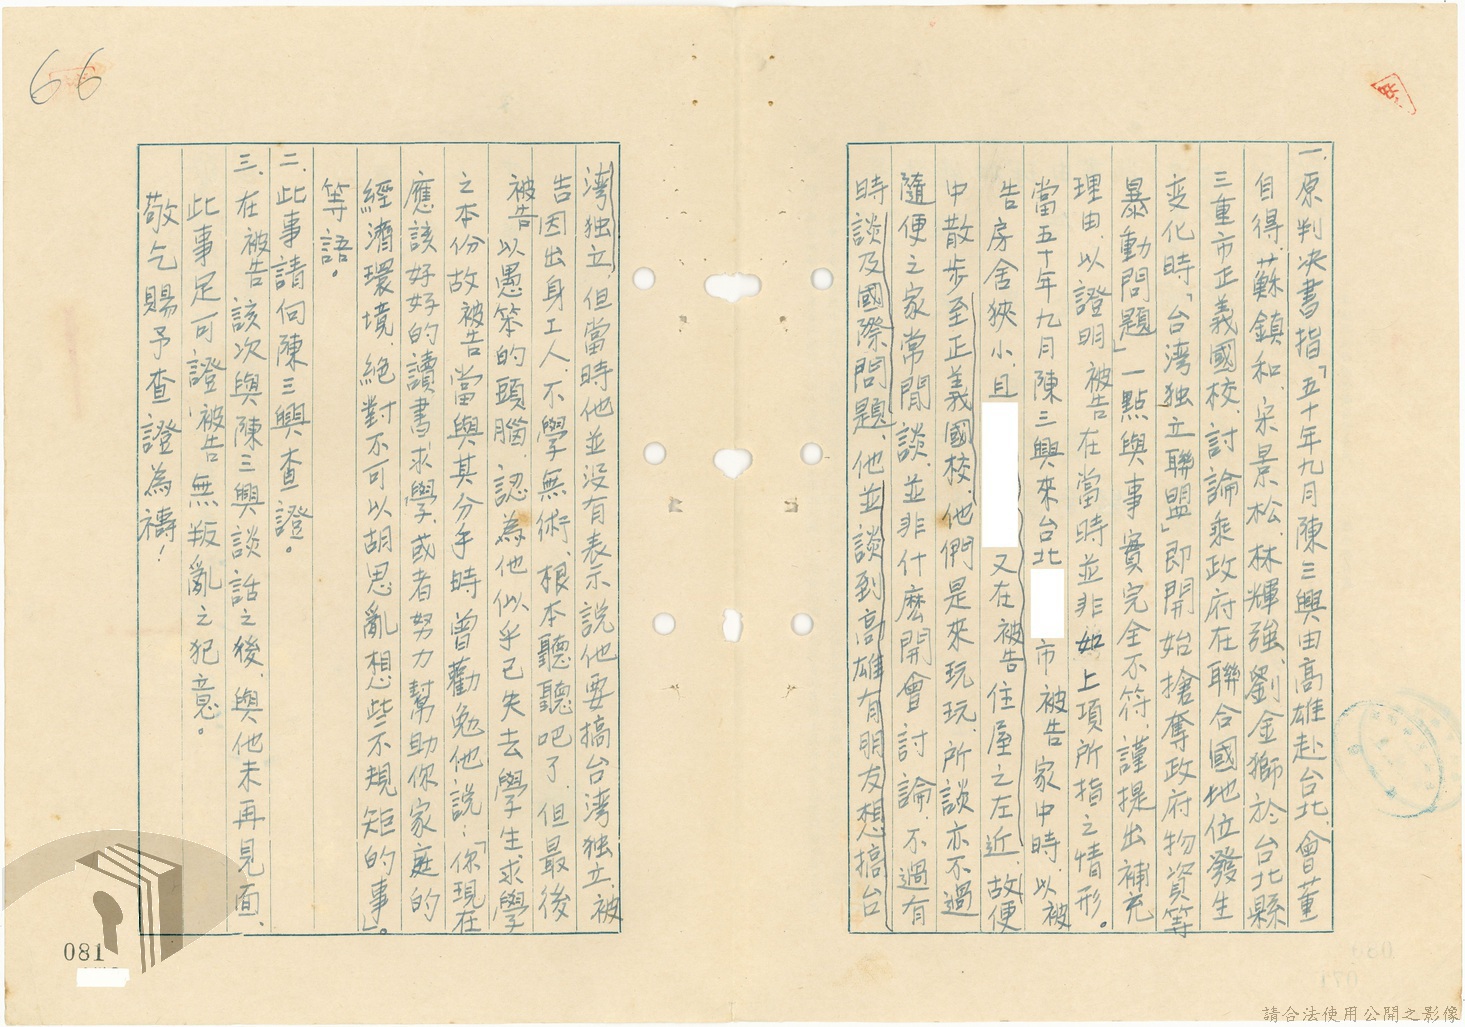 一、原判決書指「五十年九月陳三興由高雄赴台北、會董
自得、蘇鎮和、宋景松、林輝強、劉金獅於台北縣
三重市正義國校、討論乘政府在聯合國地位發生
变化時「台湾独立聯盟」即開始搶奪政府物資等
暴動問題」一點與事實完全不符、謹提出補充
理由、以證明被告在當時並非如上項所指之情形。
當五十年九月陳三興來台北 市被告家中時、以被
告房舍狹小、且 又在被告住屋之左近、故便
中散步至正義國校、他們是來玩玩、所談亦不過
隨便之家常閒談、並非什麽開會討論、不過有
時談及國際問題、他並談到高雄有朋友想搞台
湾独立、但當時他並沒有表示說他要搞台湾独立、被
告因出身工人、不學無術、根本聽聽吧了、但最後
被告以愚笨的頭腦、認為他似乎已失去學生求學
之本份故被告當與其分手時曾勸勉他說：「你現在
應該好好的讀書求學、或者努力幫助你家庭的
經濟環境、絕對不可以胡思亂想些不規矩的事」。
等語。
二、此事請向陳三興查證。
三、在被告該次與陳三興談話之後、與他未再見面、
此事足可證、被告無叛亂之犯意。
敬乞賜予查證為禱！
66
081
請合法使用公開之影像